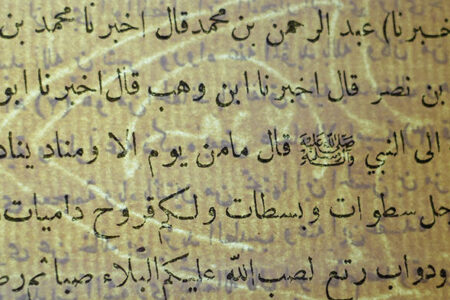 خبرنا) عبد الرحمن بن محمد قال اخبرنا محمد بن
بن نصر قال اخبرنا ابن وهب قال اخبرنا ابو
الى النبي ﷺ قال مامن يوم الا ومناد يناد
سطوات وبسطات ولكم قروح داميات
ودواب رتع لصب الله عليكم البلاء صبا ثم رض